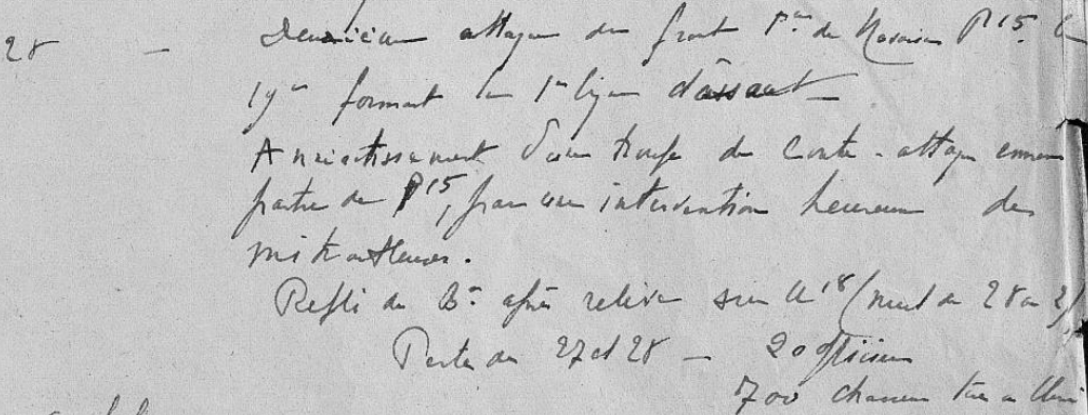 28 — Deuxième attaque du front Pan de Navarin P15. Le
19e formant la 1e ligne d'assaut —
Anéantissement d'une troupe de contre-attaque ennemie
partie de P15, par une intervention heureuse des
mitrailleuses.
Repli du Bon après relève sur U18 (nuit du 28 au 29)
Pertes des 27 et 28 — 20 officiers
700 chasseurs tués ou